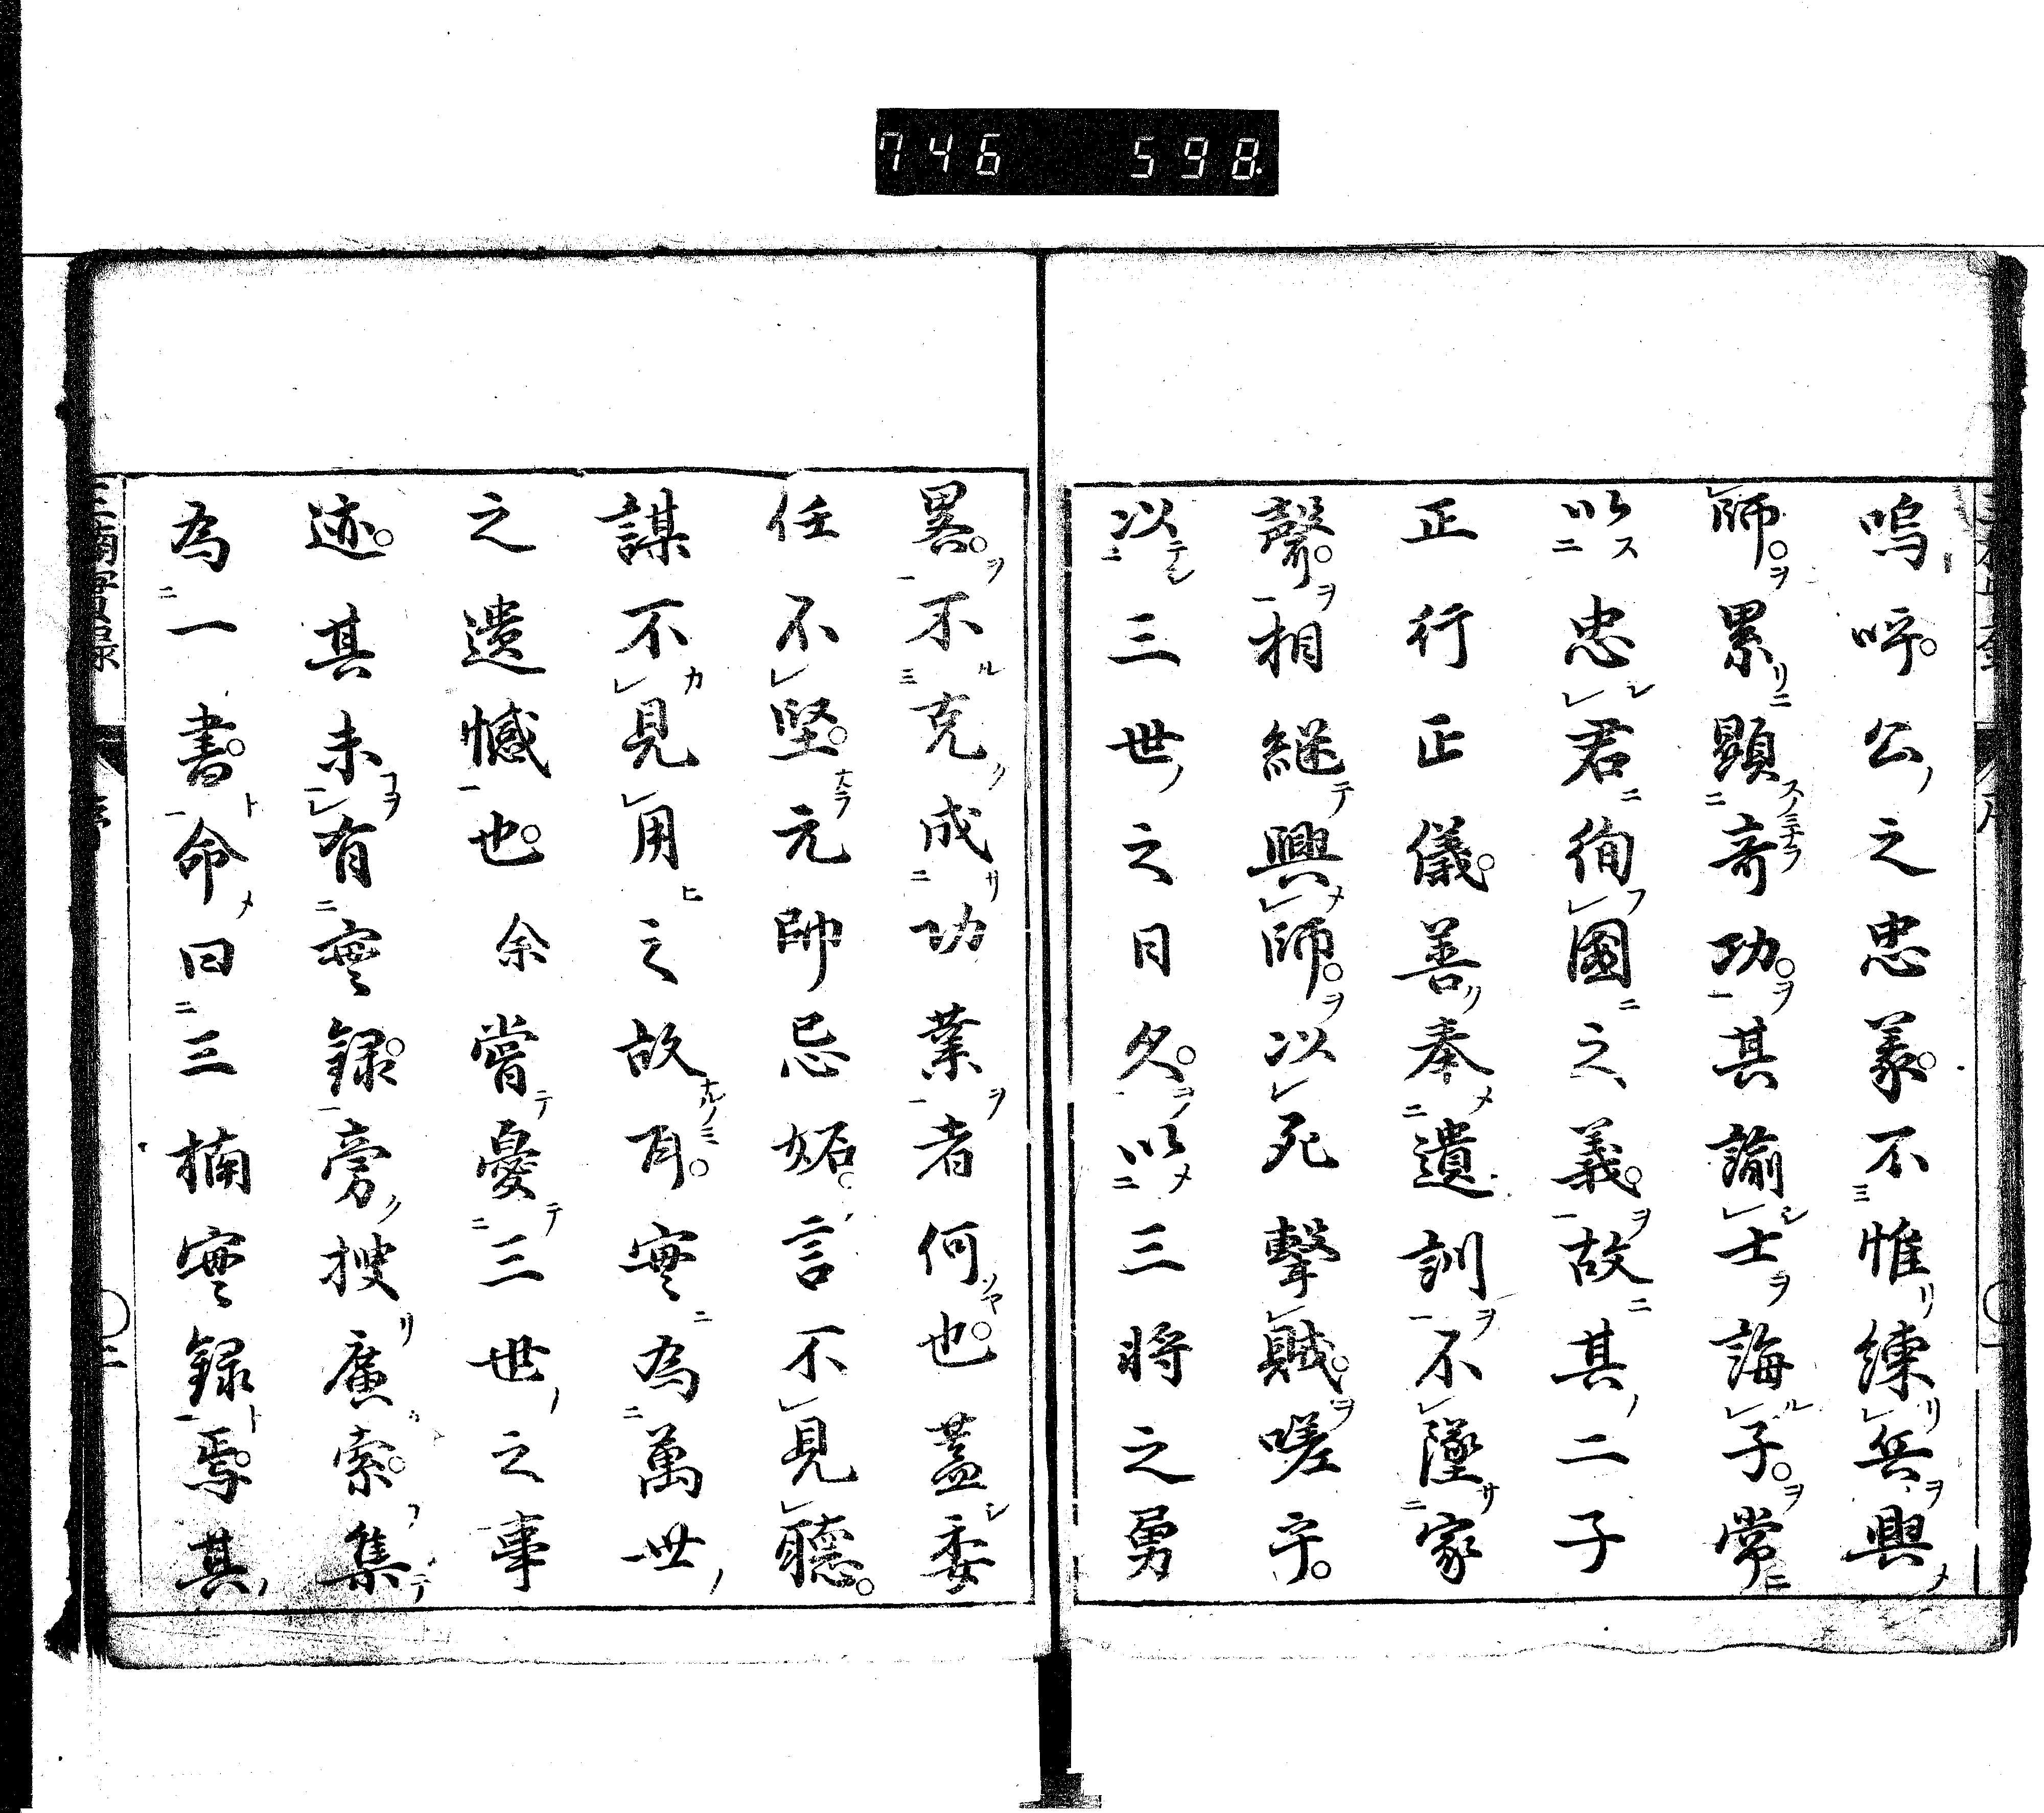 746 598.
嗚呼公之忠義不惟練兵興
師累顯奇功其諭士誨子常
以忠君徇國之義故其二子
正行正儀善奉遺訓不墜家
聲相継興師以死擊賊嗟乎
以三世之日久以三将之勇
畧不克成功業者何也蓋委
任不堅元帥忌妬言不見聴
謀不見用之故耳實為萬世
之遺憾也余嘗憂三世之事
迹其未有實録旁搜廣索集
為一書命曰三楠實録焉其
三楠實録